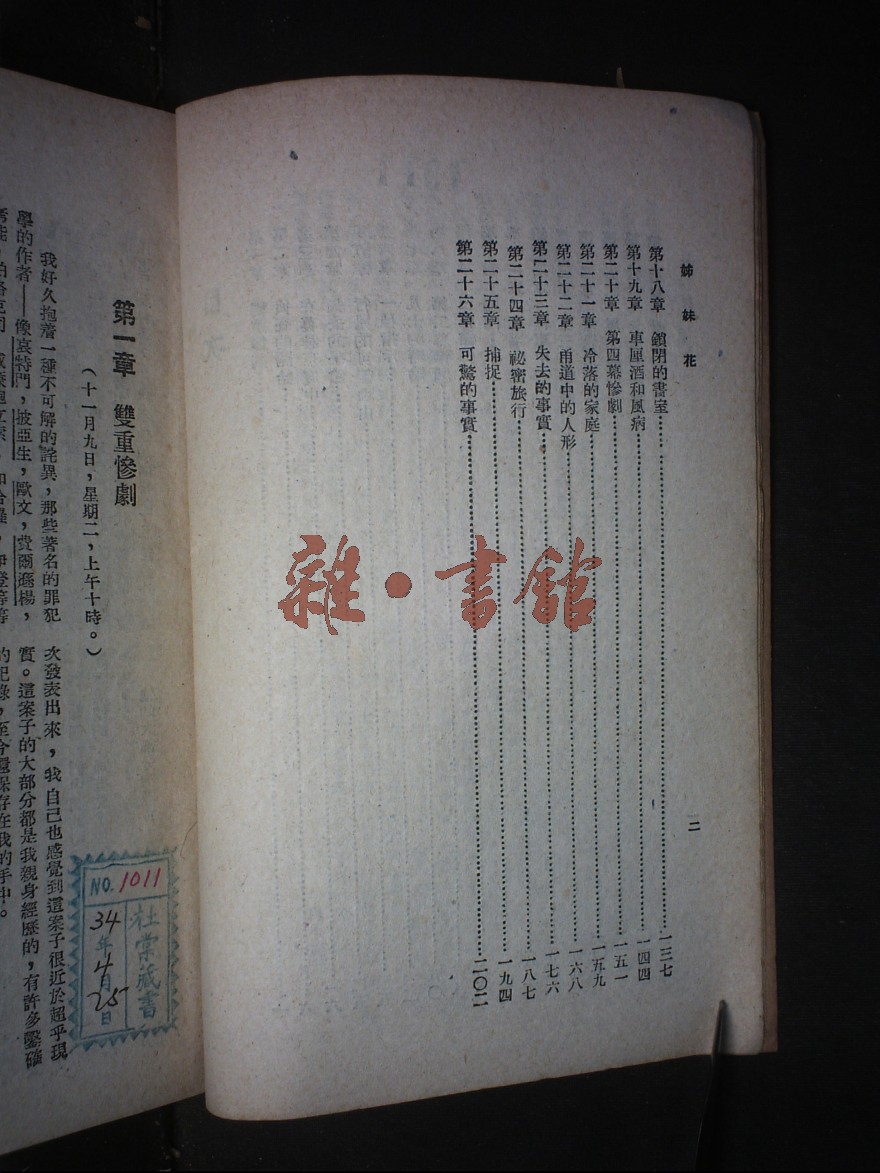 姊妹花
第十八章 鎖閉的書室……一三七
第十九章 車厘酒和風病……一四四
第二十章 第四幕慘劇……一五一
第二十一章 冷落的家庭……一五九
第二十二章 甬道中的人形……一六八
第二十三章 失去的事實……一七六
第二十四章 祕密旅行……一八七
第二十五章 捕捉……一九四
第二十六章 可驚的事實……二〇二
二
雜·書館
第一章 雙重慘劇
(十一月九日，星期二，上午十時。)
我好久抱着一種不可解的詫異，那些著名的罪犯
學的作者——像哀特門，披亞生，歐文，費爾遜楊，
次發表出來，我自己也感覺到這案子很近於超乎現
實。這案子的大部分都是我親身經歷的，有許多鑿確
的記錄，至今還保存在我的手中。
NO. 1011
杜棠藏書
34年4月25日